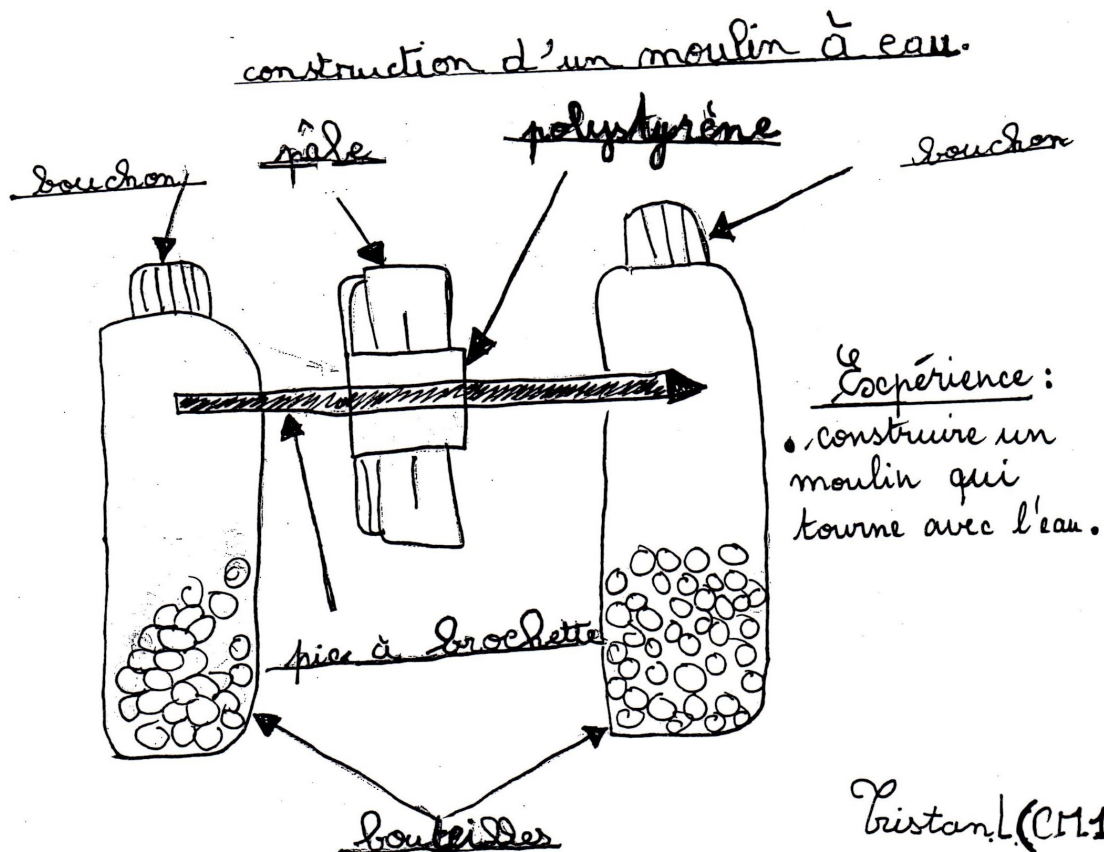 construction d'un moulin à eau.
bouchon
pâle
polystyrène
bouchon
Expérience :
. construire un
moulin qui
tourne avec l'eau.
pic à brochette
bouteilles
Tristan.L (CM1